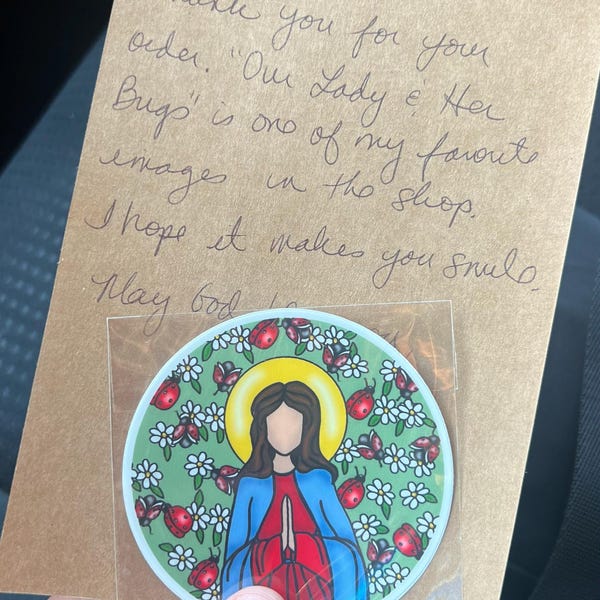 you for your
order. "Our Lady & Her
Bugs" is one of my favorite
images in the shop.
I hope it makes you smile.
May God